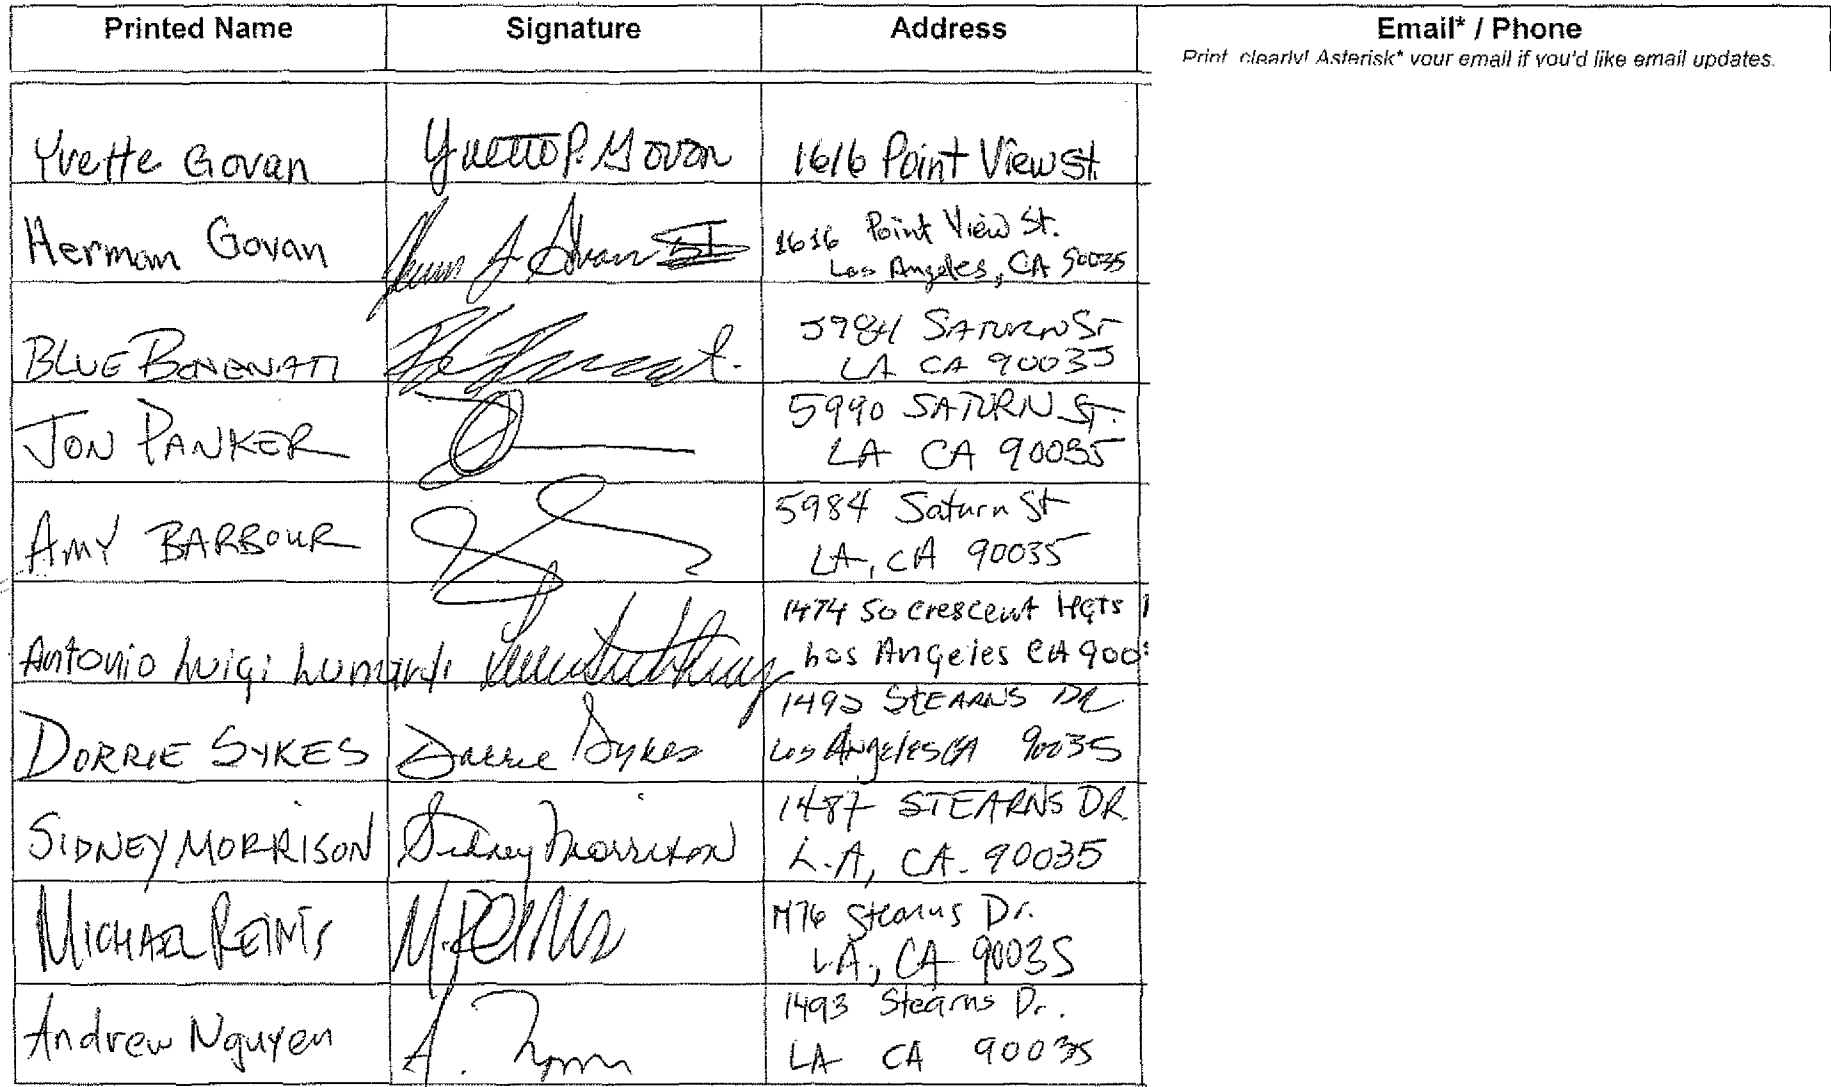 Printed Name Signature Address Email* / Phone
Print clearly! Asterisk* your email if you'd like email updates.
Yvette Govan Yvette P. Govan 1616 Point View St.
Herman Govan 1616 Point View St.
Los Angeles, CA 90035
BLUE BONENATI 5984 SATURN ST
LA CA 90035
JON PANKER 5990 SATURN ST.
LA CA 90035
AMY BARBOUR 5984 Saturn St
LA, CA 90035
1474 So Crescent HGTS
Antonio Luigi Los Angeles CA 900
DORRIE SYKES Dorrie Sykes 1492 STEARNS DR
Los Angeles CA 90035
SIDNEY MORRISON Sidney Morrison 1487 STEARNS DR.
L.A, CA. 90035
MICHAEL REINIS 1476 Stearns Dr.
LA, CA 90035
Andrew Nguyen A. 1493 Stearns Dr.
LA CA 90035